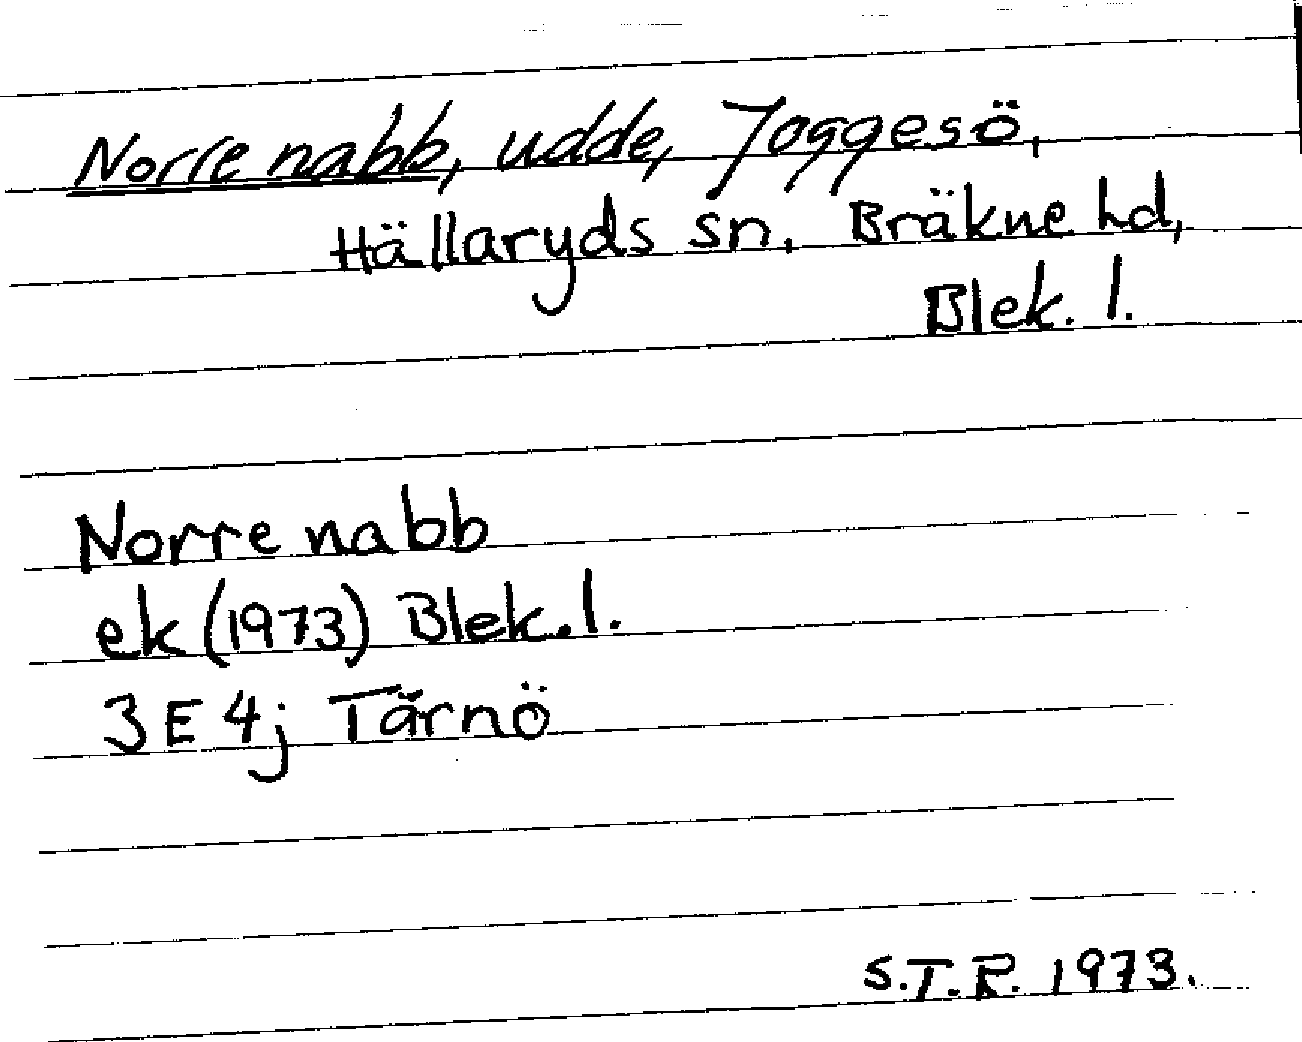 Norre nabb, udde, Joggesö,
Hällaryds sn, Bräkne hd,
Blek. l.
Norre nabb
ek (1973) Blek. l.
3E4j Tärnö
S.T.R. 1973.